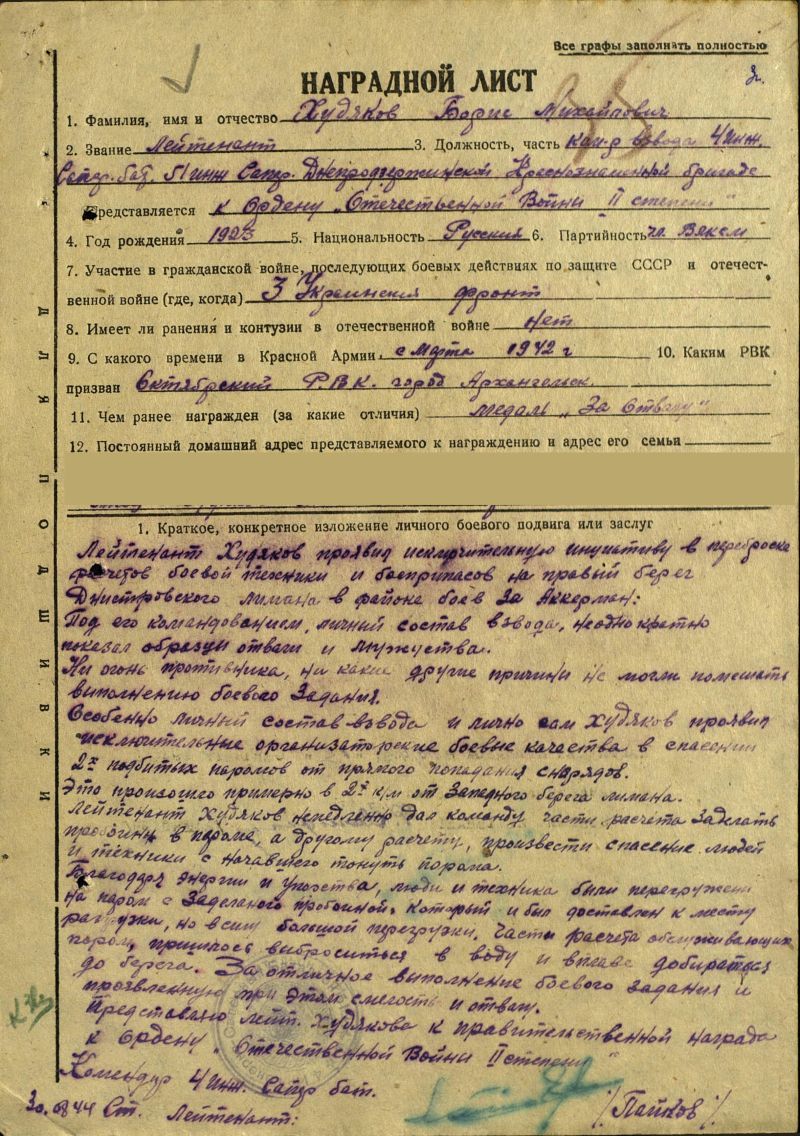 Все графы заполнять полностью
2.
НАГРАДНОЙ ЛИСТ
1. Фамилия, имя и отчество Худяков Борис Михайлович
2. Звание Лейтенант 3. Должность, часть Ком-р взвода 4 инж.
Сапр. бат. 51 инж Сапр. Днепродзержинской Краснознаменной бригаде
Представляется к Ордену „Отечественной Войны II степени"
4. Год рождения 1923 5. Национальность Русский 6. Партийность чл. Влксм
7. Участие в гражданской войне, последующих боевых действиях по защите СССР и отечест-
венной войне (где, когда) 3 Украинский фронт
8. Имеет ли ранения и контузии в отечественной войне нет
9. С какого времени в Красной Армии с Марта 1942 г 10. Каким РВК
призван Октябрский Р.В.К. город Архангельск.
11. Чем ранее награжден (за какие отличия) медаль „За Отвагу"
12. Постоянный домашний адрес представляемого к награждению и адрес его семьи
1. Краткое, конкретное изложение личного боевого подвига или заслуг
Лейтенант Худяков проявил исключительную инициативу в переброске
расчетов боевой техники и боеприпасов на правый берег
Днистровского лимана в районе боев За Аккерман:
Под его командованием, личный состав взвода, неоднократно
показал образцы отваги и мужества.
Ни огонь противника, ни какие другие причины не могли помешать
выполнению боевого Задания.
Особенно личный состав взвода и лично сам Худяков проявил
исключительные организаторские боевые качества в спасении
2х подбитых паромов от прямого попадания снарядов.
Это произошло примерно в 2х к/м от Западного берега лимана.
Лейтенант Худяков немедленно дал команду части расчета Заделать
пробоины в пароме, а другому расчету, произвести спасение людей
и техники с начавшего тонуть парома.
Благодаря энергии и упорства, люди и техника были перегружены
на паром с Заделаной пробоиной, который и был доставлен к месту
разгрузки, но в силу большой перегрузки, части расчета обслуживающих
паром, пришлось выброситься в воду и вплавь добираться
до берега. За отличное выполнение боевого задания и
проявленную при этом смелость и отвагу.
Представляю лейт. Худякова к правительственной награде
к Ордену „Отечественной Войны II степени"
Командир 4 инж. Сапр бат.
30.08 44 Ст. Лейтенант: /Пайков/
ДЛЯ ПОДШИВКИ